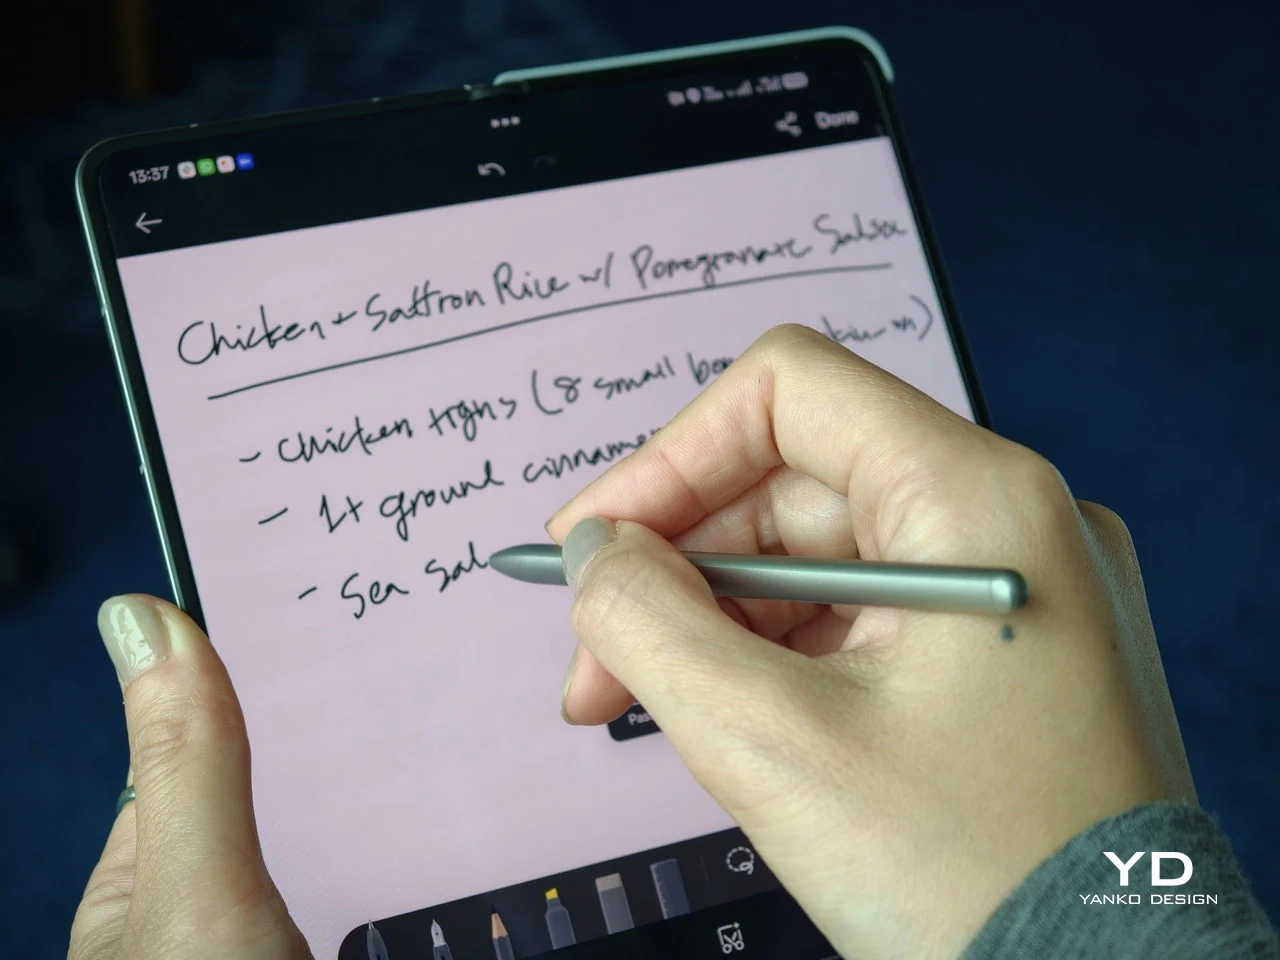 13:37
Done
Chicken + Saffron Rice w/ Pomegranate Salsa
- Chicken tighs (8 small
- 1t ground
- Sea Sal
YD
YANKO DESIGN